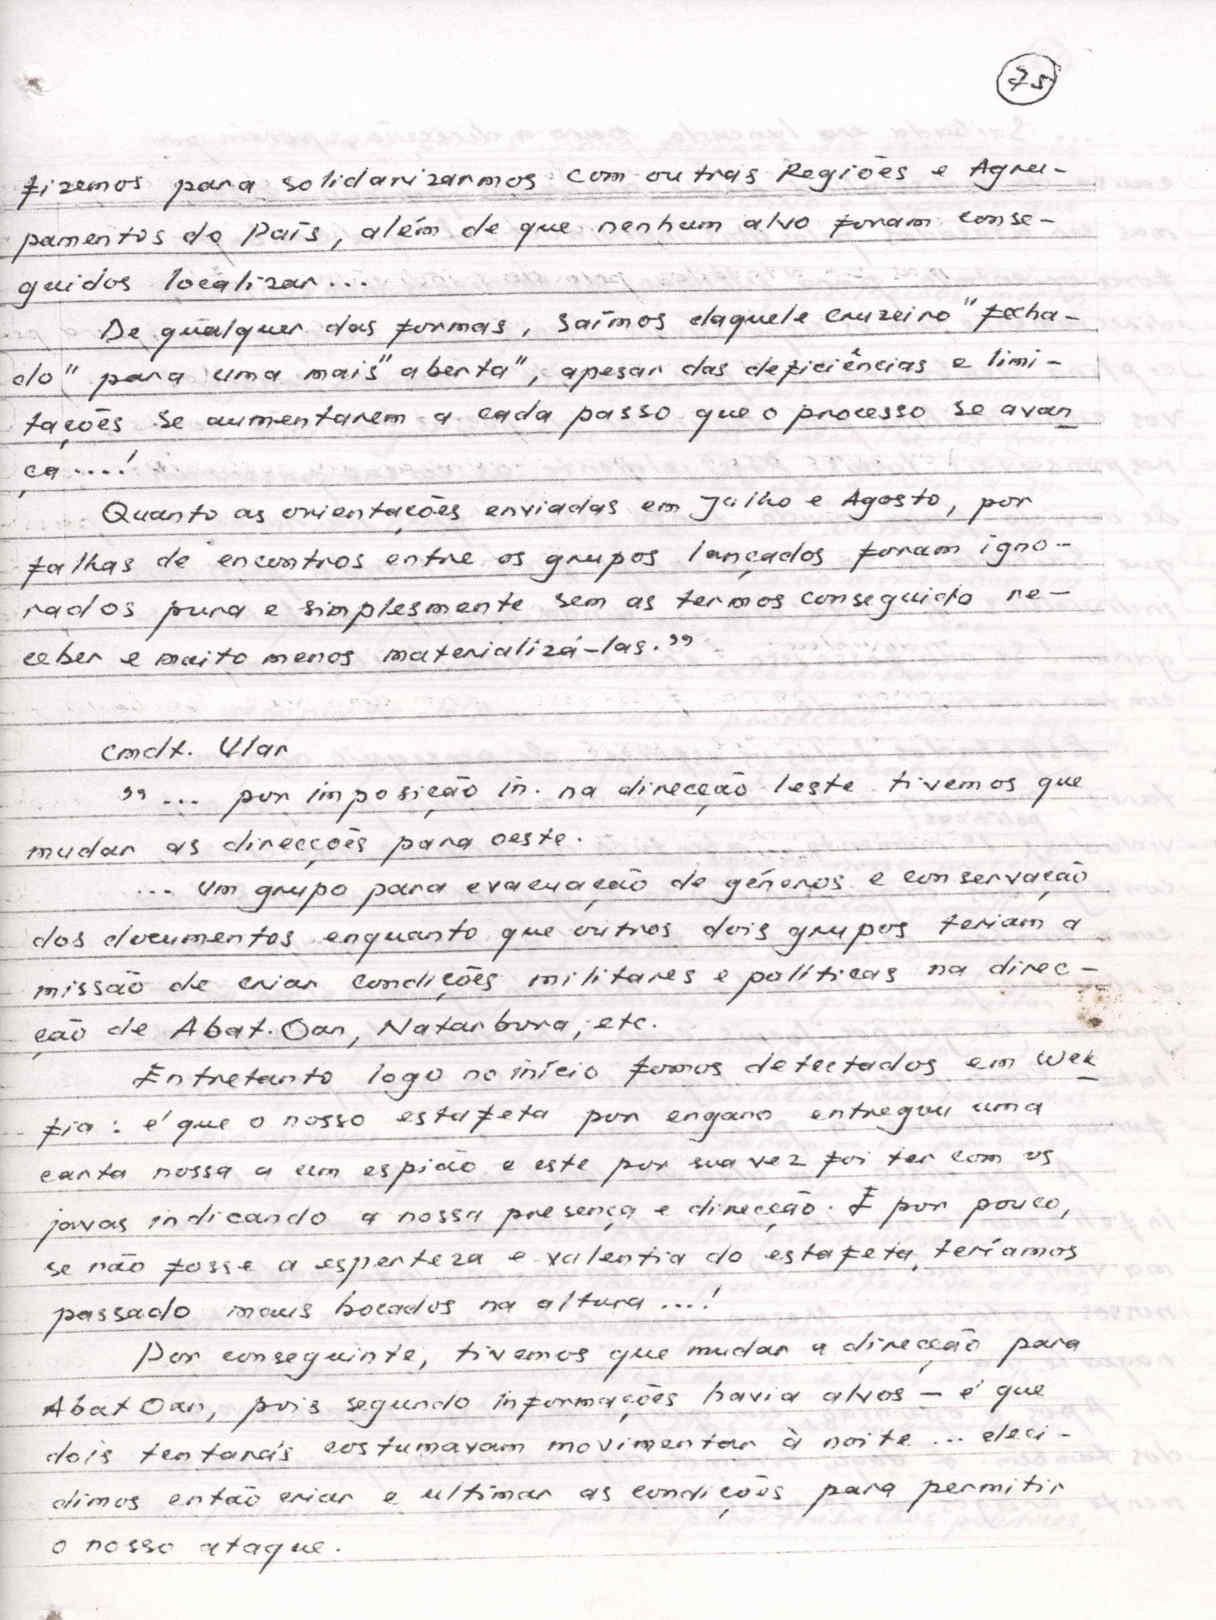 75
fizemos para solidarizarmos com outras Regiões e Agru-
pamentos do País, além de que nenhum alvo foram conse-
guidos localizar...
De qualquer das formas, saímos daquele cruzeiro "fecha-
do" para uma mais "aberta", apesar das deficiências e limi-
tações se aumentarem a cada passo que o processo se avan
ça....!
Quanto as orientações enviadas em Julho e Agosto, por
falhas de encontros entre os grupos lançados foram igno-
rados pura e simplesmente sem as termos conseguido re-
ceber e muito menos materializá-las."
Cmdt. Ular
"... por imposição in. na direcção leste tivemos que
mudar as direcções para oeste.
... um grupo para evacuação de géneros e conservação
dos documentos enquanto que outros dois grupos teriam a
missão de criar condições militares e políticas na direc-
ção de Abat.Oan, Natarbora, etc.
Entretanto logo no início fomos detectados em Wek
fia: é que o nosso estafeta por engano entregou uma
carta nossa a um espião e este por sua vez foi ter com os
javas indicando a nossa presença e direcção. E por pouco,
se não fosse a esperteza e valentia do estafeta, teríamos
passado maus bocados na altura...!
Por conseguinte, tivemos que mudar a direcção para
Abat Oan, pois segundo informações havia alvos - é que
dois tentarás costumavam movimentar à noite ... deci-
dimos então criar e ultimar as condições para permitir
o nosso ataque.